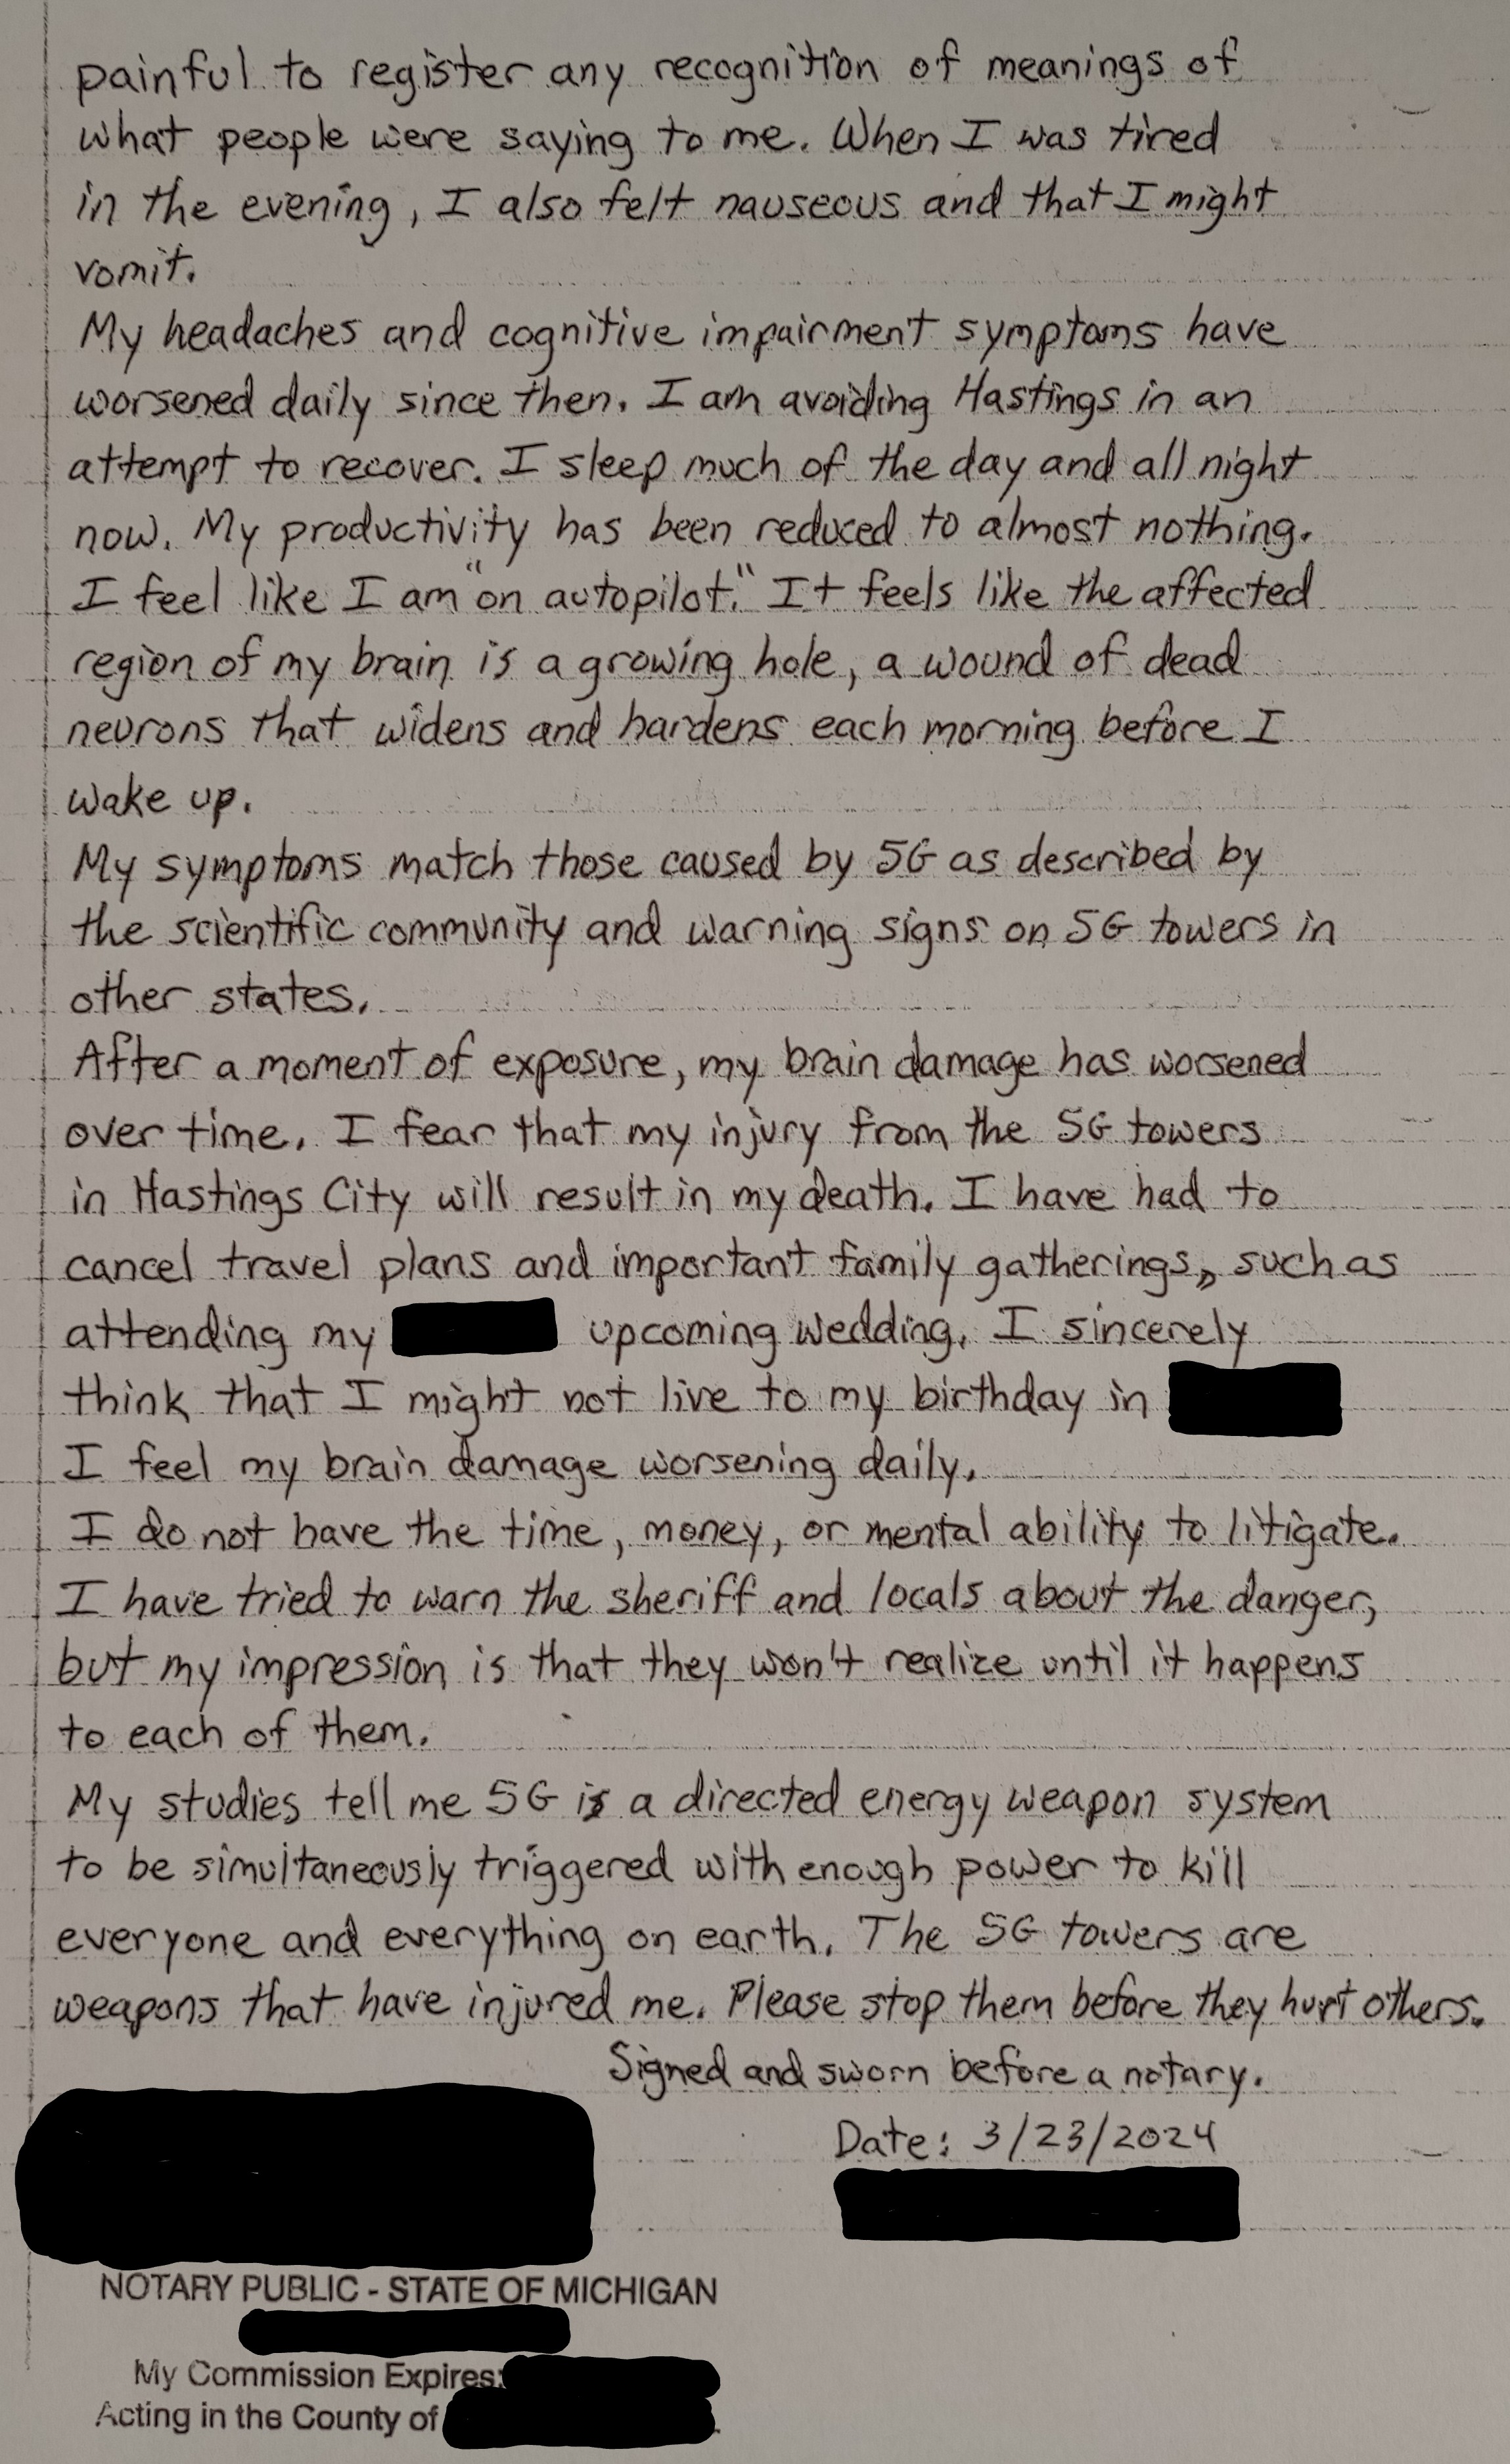 painful to register any recognition of meanings of
what people were saying to me. When I was tired
in the evening, I also felt nauseous and that I might
vomit.
My headaches and cognitive impairment symptoms have
worsened daily since then. I am avoiding Hastings in an
attempt to recover. I sleep much of the day and all night
now. My productivity has been reduced to almost nothing.
I feel like I am "on autopilot." It feels like the affected
region of my brain is a growing hole, a wound of dead
neurons that widens and hardens each morning before I
wake up.
My symptoms match those caused by 5G as described by
the scientific community and warning signs on 5G towers in
other states.
After a moment of exposure, my brain damage has worsened
over time. I fear that my injury from the 5G towers
in Hastings City will result in my death. I have had to
cancel travel plans and important family gatherings, such as
attending my upcoming wedding. I sincerely
think that I might not live to my birthday in
I feel my brain damage worsening daily.
I do not have the time, money, or mental ability to litigate.
I have tried to warn the sheriff and locals about the danger,
but my impression is that they won't realize until it happens
to each of them.
My studies tell me 5G is a directed energy weapon system
to be simultaneously triggered with enough power to kill
everyone and everything on earth. The 5G towers are
weapons that have injured me. Please stop them before they hurt others.
Signed and sworn before a notary.
Date: 3/23/2024
NOTARY PUBLIC - STATE OF MICHIGAN
My Commission Expires:
Acting in the County of